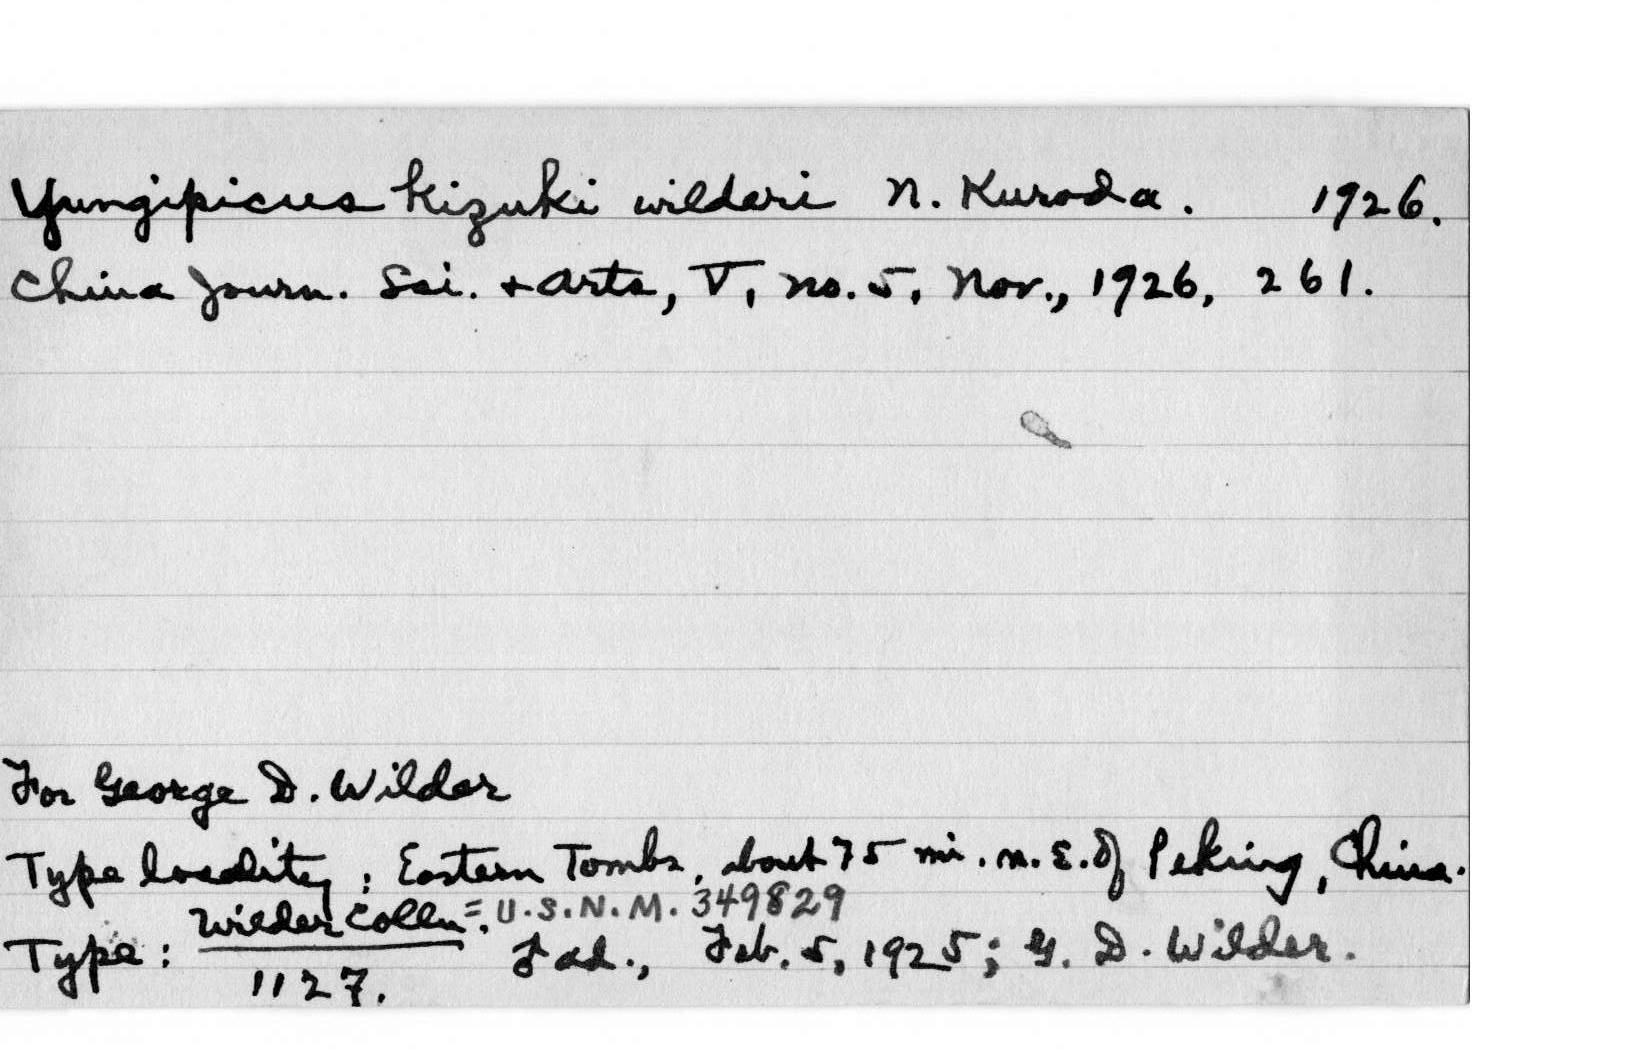 Yungipicus kizuki wilderi N. Kuroda. 1926.
China Journ. Sci. + Arts, V, no. 5, Nov., 1926, 261.
For George D. Wilder
Type locality: Eastern Tombs, about 75 mi. n.E. of Peking, China.
Wilder Colln. = U.S.N.M. 349829
Type: ad., Feb. 5, 1925; G. D. Wilder.
1127.